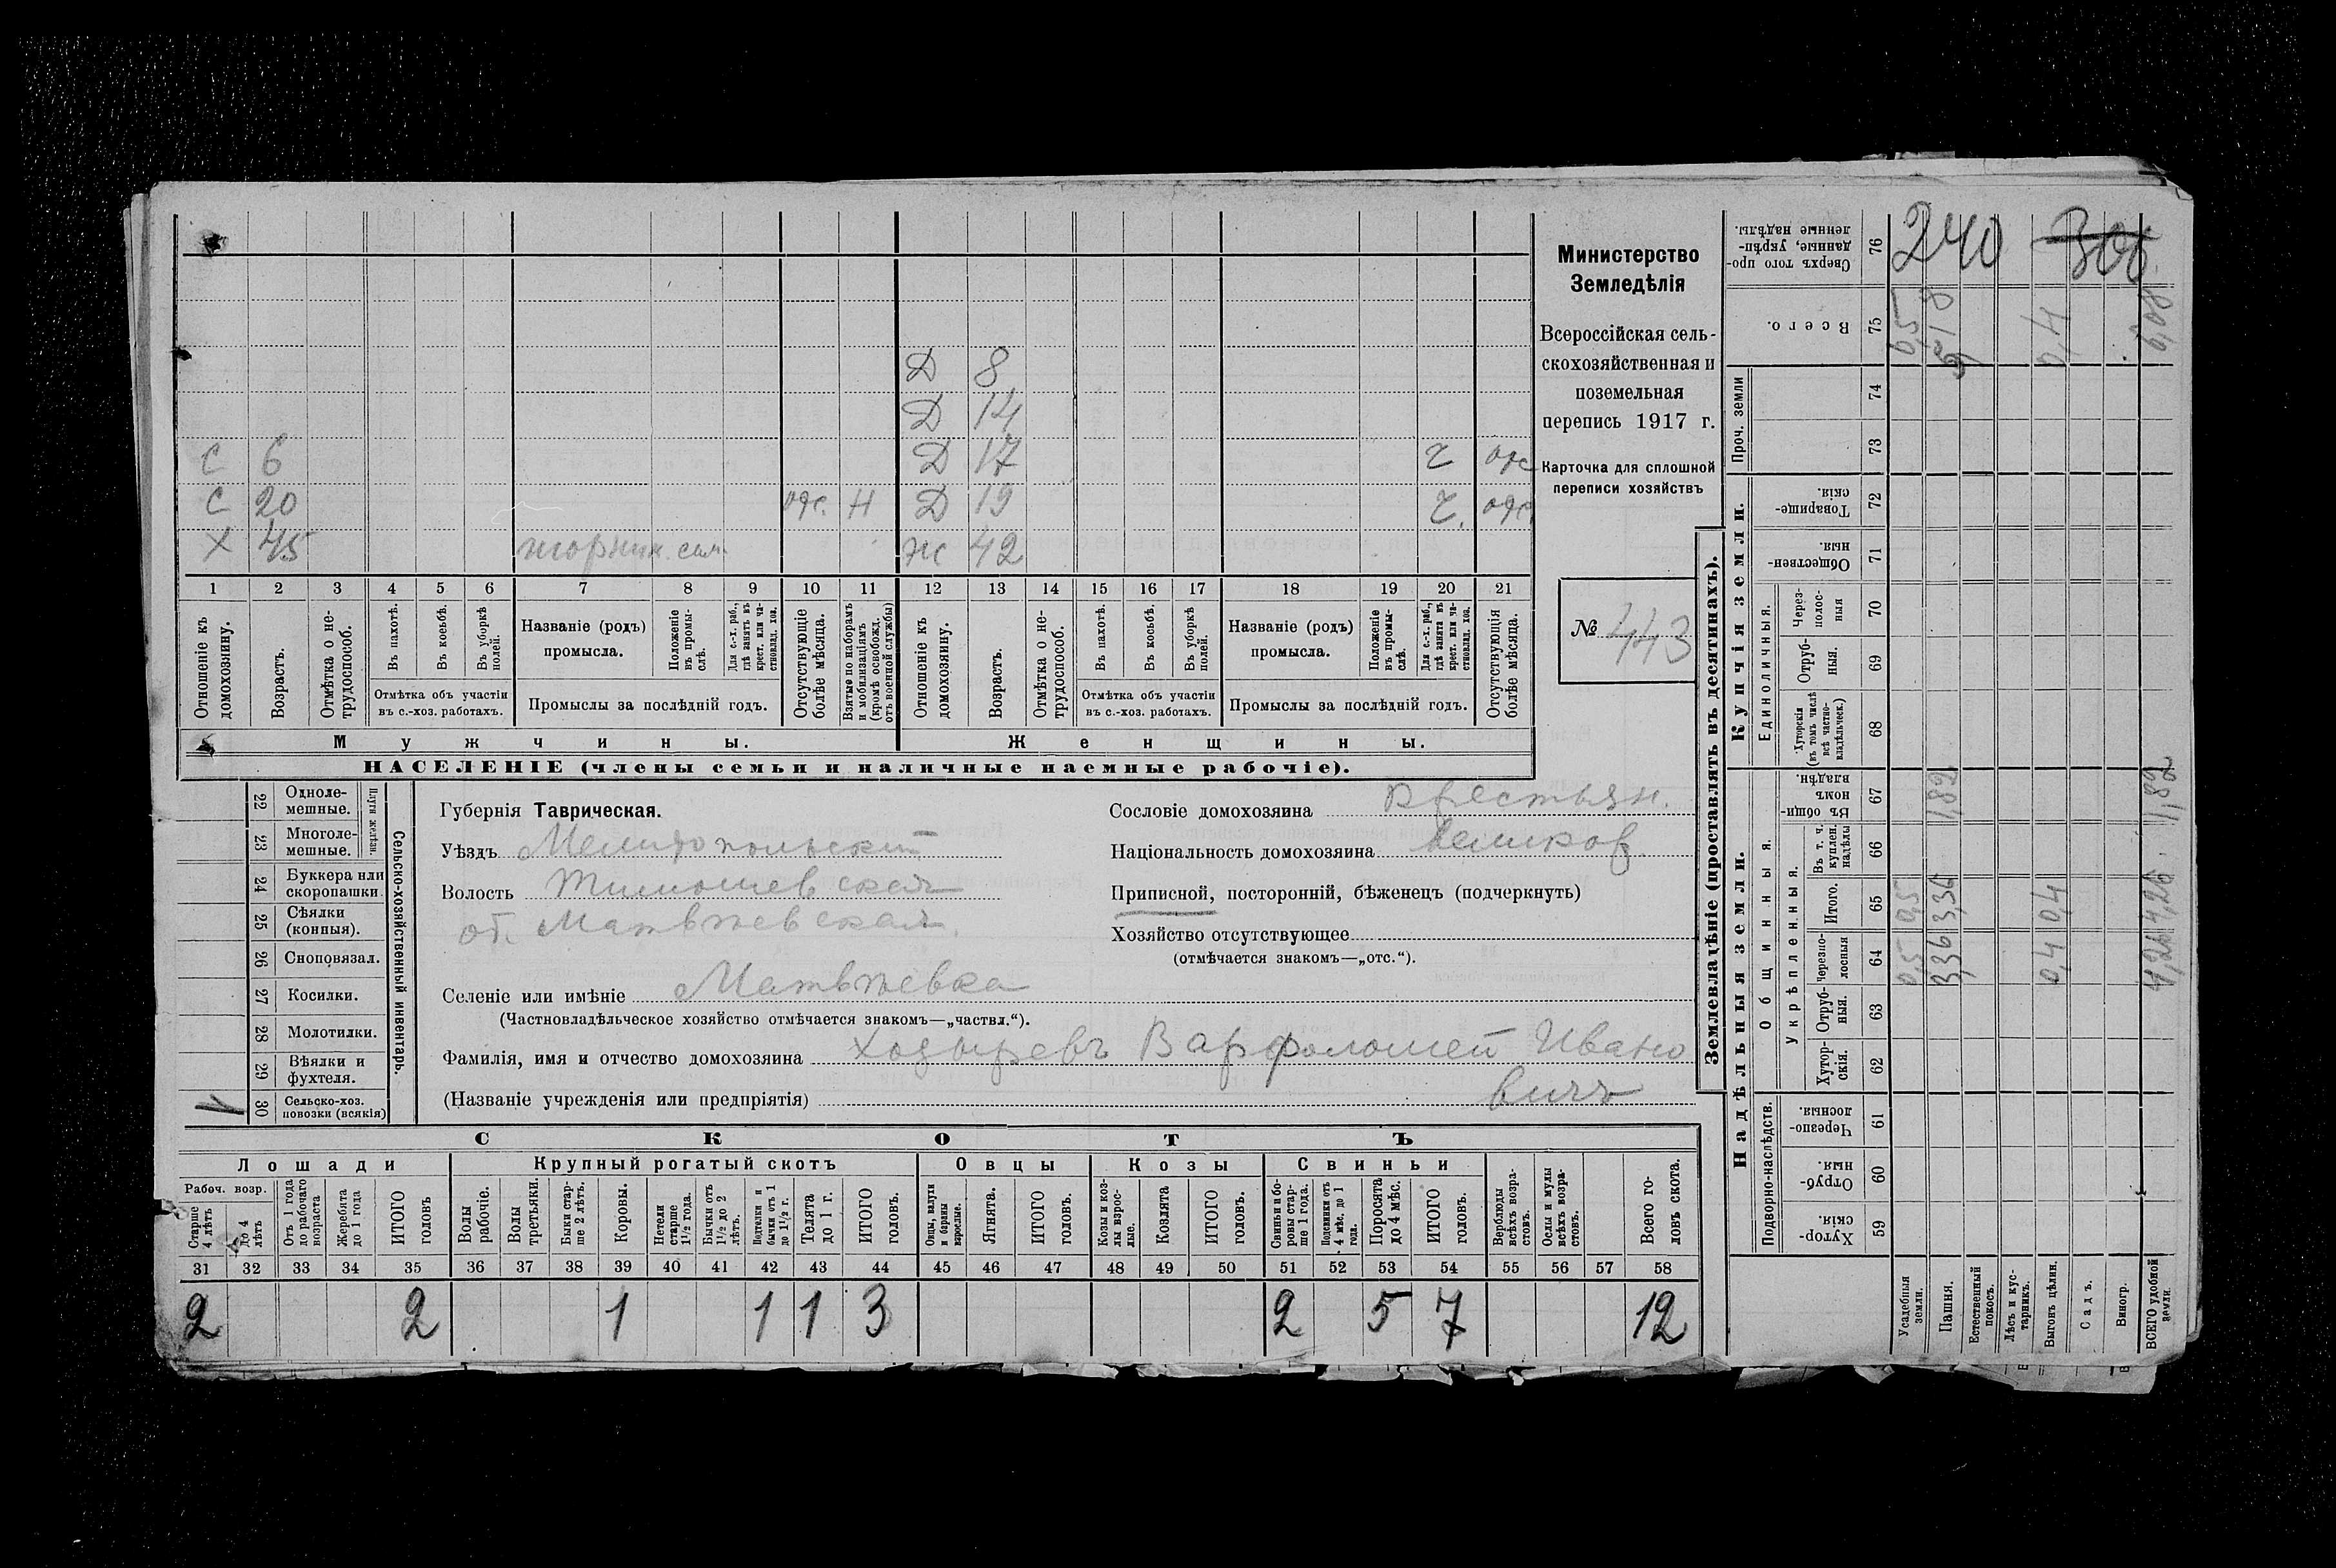 Д 8
Д 14
С 6 Д 17 г отс
С 20 отс. Н Д 19 г. отс.
Х 45 Ж 42
1 2 3 4 5 6 7 8 9 10 11 12 13 14 15 16 17 18 19 20 21
Отношеніе къ домохозяину.
Возрастъ.
Отмѣтка о не-трудоспособ.
Въ пахотѣ.
Въ косьбѣ.
Въ уборкѣ полей.
Отмѣтка объ участіи въ с.-хоз. работахъ.
Названіе (родъ) промысла.
Положеніе въ промы-слѣ.
Для с.-х. раб., гдѣ занятъ въ крест. или ча-стновлад. хоз.
Промыслы за послѣдній годъ.
Отсутствующіе болѣе мѣсяца.
Взятые по наборамъ и мобилизаціямъ (кромѣ освобожд. отъ военной службы)
Отношеніе къ домохозяину.
Возрастъ.
Отмѣтка о не-трудоспособ.
Въ пахотѣ.
Въ косьбѣ.
Въ уборкѣ полей.
Отмѣтка объ участіи въ с.-хоз. работахъ.
Названіе (родъ) промысла.
Положеніе въ промы-слѣ.
Для с.-х. раб., гдѣ занята въ крест. или ча-стновлад. хоз.
Промыслы за послѣдній годъ.
Отсутствующія болѣе мѣсяца.
Мужчины. Женщины.
НАСЕЛЕНІЕ (члены семьи и наличные наемные рабочіе).
Министерство
Земледѣлія
Всероссійская сель-
скохозяйственная и
поземельная
перепись 1917 г.
Карточка для сплошной
переписи хозяйствъ
№ 443
22 Одноле-мешные.
23 Многоле-мешные.
Плуги желѣзн.
24 Буккера или скоропашки.
25 Сѣялки (конныя).
26 Сноповязал.
27 Косилки.
28 Молотилки.
29 Вѣялки и фухтеля.
30 Сельско-хоз. повозки (всякія)
Сельско-хозяйственный инвентарь.
Губернія Таврическая.
Уѣздъ Мелитопольскій
Волость Тимошевская
об. Матвѣевская.
Селеніе или имѣніе Матвѣевка
(Частновладѣльческое хозяйство отмѣчается знакомъ—„частвл.“).
Фамилія, имя и отчество домохозяина Хозыревъ Варфоломей Ивано
вичъ
(Названіе учрежденія или предпріятія)
Сословіе домохозяина крестьян.
Національность домохозяина великор.
Приписной, посторонній, бѣженецъ (подчеркнуть)
Хозяйство отсутствующее
(отмѣчается знакомъ—„отс.“).
СКОТЪ
Лошади Крупный рогатый скотъ Овцы Козы Свиньи
Рабоч. возр.
Старше 4 лѣтъ
До 4 лѣтъ
Отъ 1 года до рабочаго возраста
Жеребята до 1 года
ИТОГО головъ
Волы рабочіе.
Волы третьяки.
Быки стар-ше 2 лѣтъ.
Коровы.
Нетели старше 1½ года.
Бычки отъ 1½ до 2 лѣтъ.
Подтелки и бычки отъ 1 до 1½ г.
Телята до 1 г.
ИТОГО головъ.
Овцы, валухи и бараны взрослые.
Ягнята.
ИТОГО головъ.
Козы и коз-лы взрос-лые.
Козлята
ИТОГО головъ.
Свиньи и бо-ровы стар-ше 1 года.
Подсвинки отъ 4 мѣс. до 1 года.
Поросята до 4 мѣс.
ИТОГО головъ.
Верблюды всѣхъ возра-стовъ.
Ослы и мулы всѣхъ возра-стовъ.
Всего го-ловъ скота.
31 32 33 34 35 36 37 38 39 40 41 42 43 44 45 46 47 48 49 50 51 52 53 54 55 56 57 58
2 2 1 1 1 3 2 5 7 12
Землевладѣніе (проставлять въ десятинахъ).
Надѣльныя земли. Купчія земли. Проч. земли
Подворно-наслѣдств.
Общинныя.
Укрѣпленныя.
Единоличныя.
Хутор-скія. 59
Отруб-ныя. 60
Черезпо-лосныя 61
Хутор-скія. 62
Отруб-ныя. 63
Черезпо-лосныя 64
Итого. 65
Въ т. ч. куплен. надѣлы 66
Въ общи-номъ владѣн. 67
Хуторскія (въ томъ числѣ всѣ частно-владѣльческ.) 68
Отруб-ныя. 69
Через-полос-ныя 70
Обществен-ныя. 71
Товарище-скія. 72
73
74
Всего. 75
Сверхъ того про-данные, укрѣп-ленные надѣлы. 76
Усадебныя земли. 0,5 0,5 0,5
Пашня. 3,36 3,36 1,82 5,18
Естественный покосъ.
Лѣсъ и кус-тарникъ.
Выгонъ цѣлин. 0,4 0,4 0,4
Садъ.
Виногр.
ВСЕГО удобной земли. 4,26 4,26 1,82 6,08
240
306